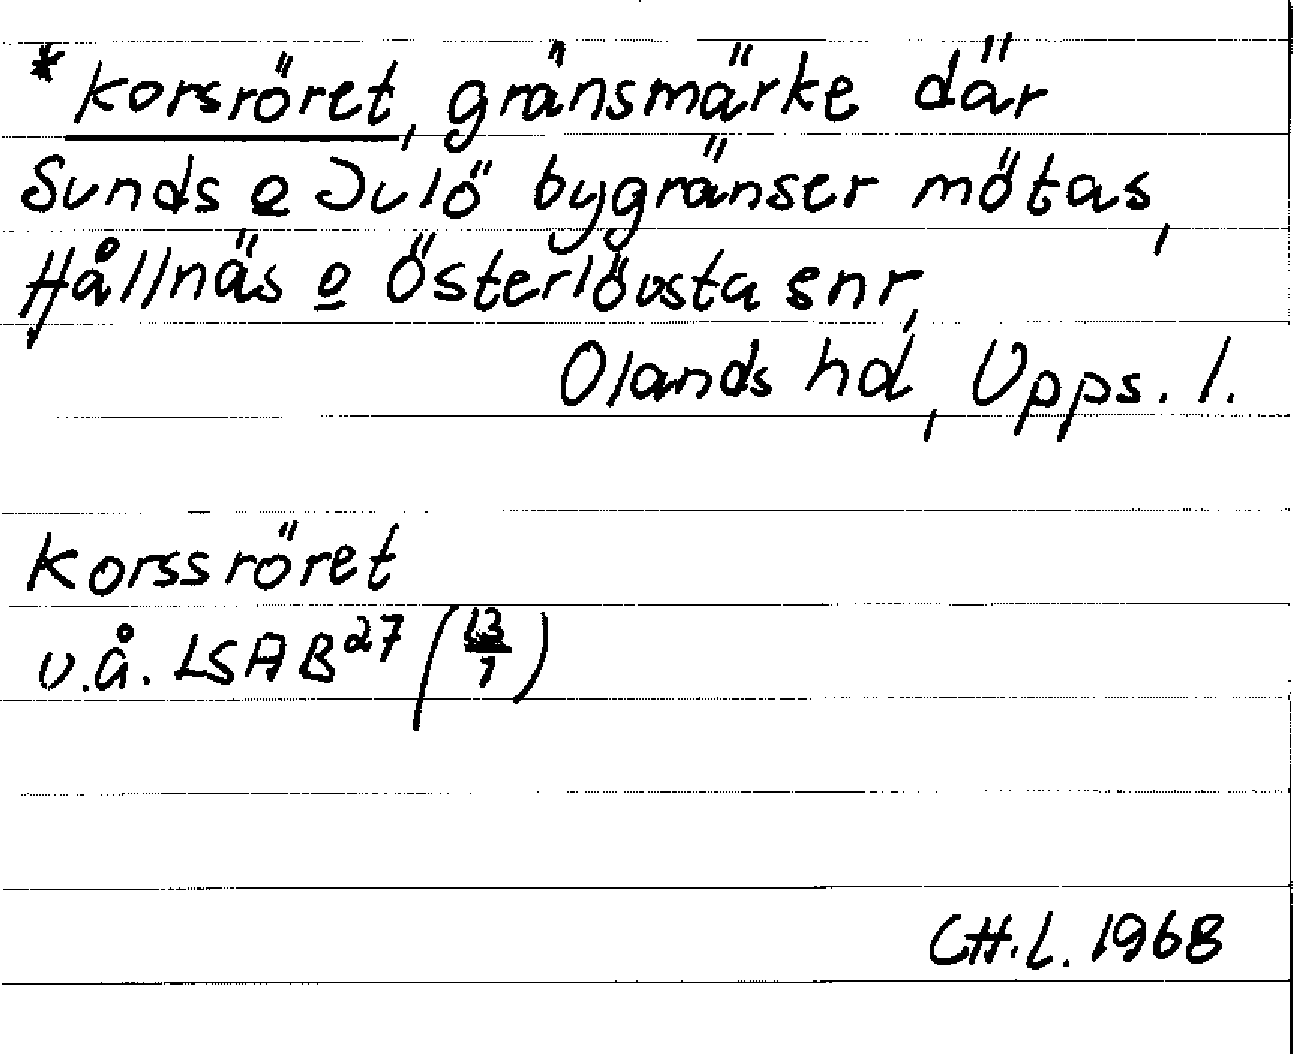 *Korsröret, gränsmärke där
Sunds o Julö bygränser mötas,
Hållnäs o Österlövsta snr,
Olands hd, Upps. l.
Korssröret
u.å. LSA B²⁷ (13/1)
CH.L. 1968